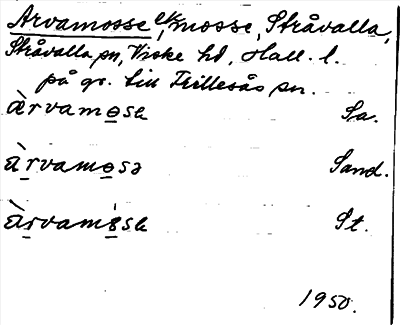 Arvamosse, mosse, Stråvalla,
Stråvalla sn, Viske hd, Hall. l.
på gr. till Frillesås sn.
àrvamo̲sə Sa.
àr̲vamo̲sə Sand.
àr̲vamo̲sə St.
1950.